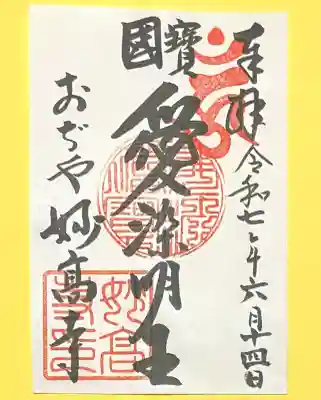 奉拝
令和七年六月十四日
國寶
愛染明王
おぢや
妙高寺